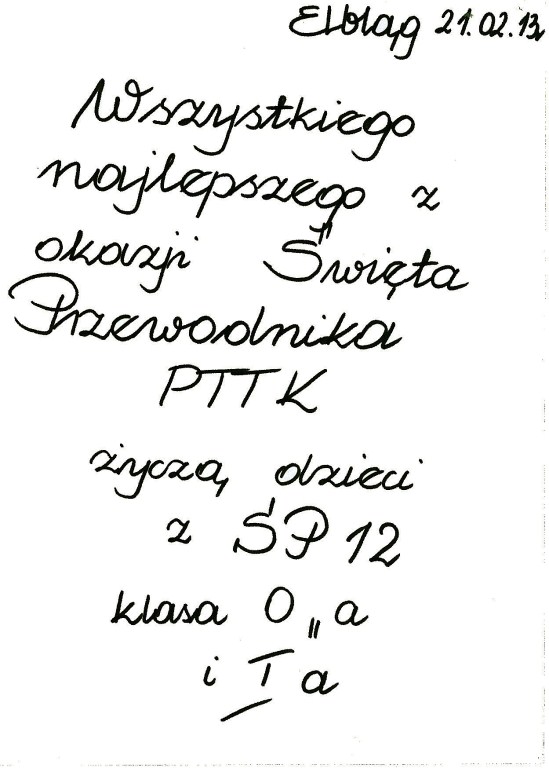 Elbląg 21.02.13r
Wszystkiego
najlepszego z
okazji Święta
Przewodnika
PTTK
życzą dzieci
z ŚP 12
klasa O„a
i I a